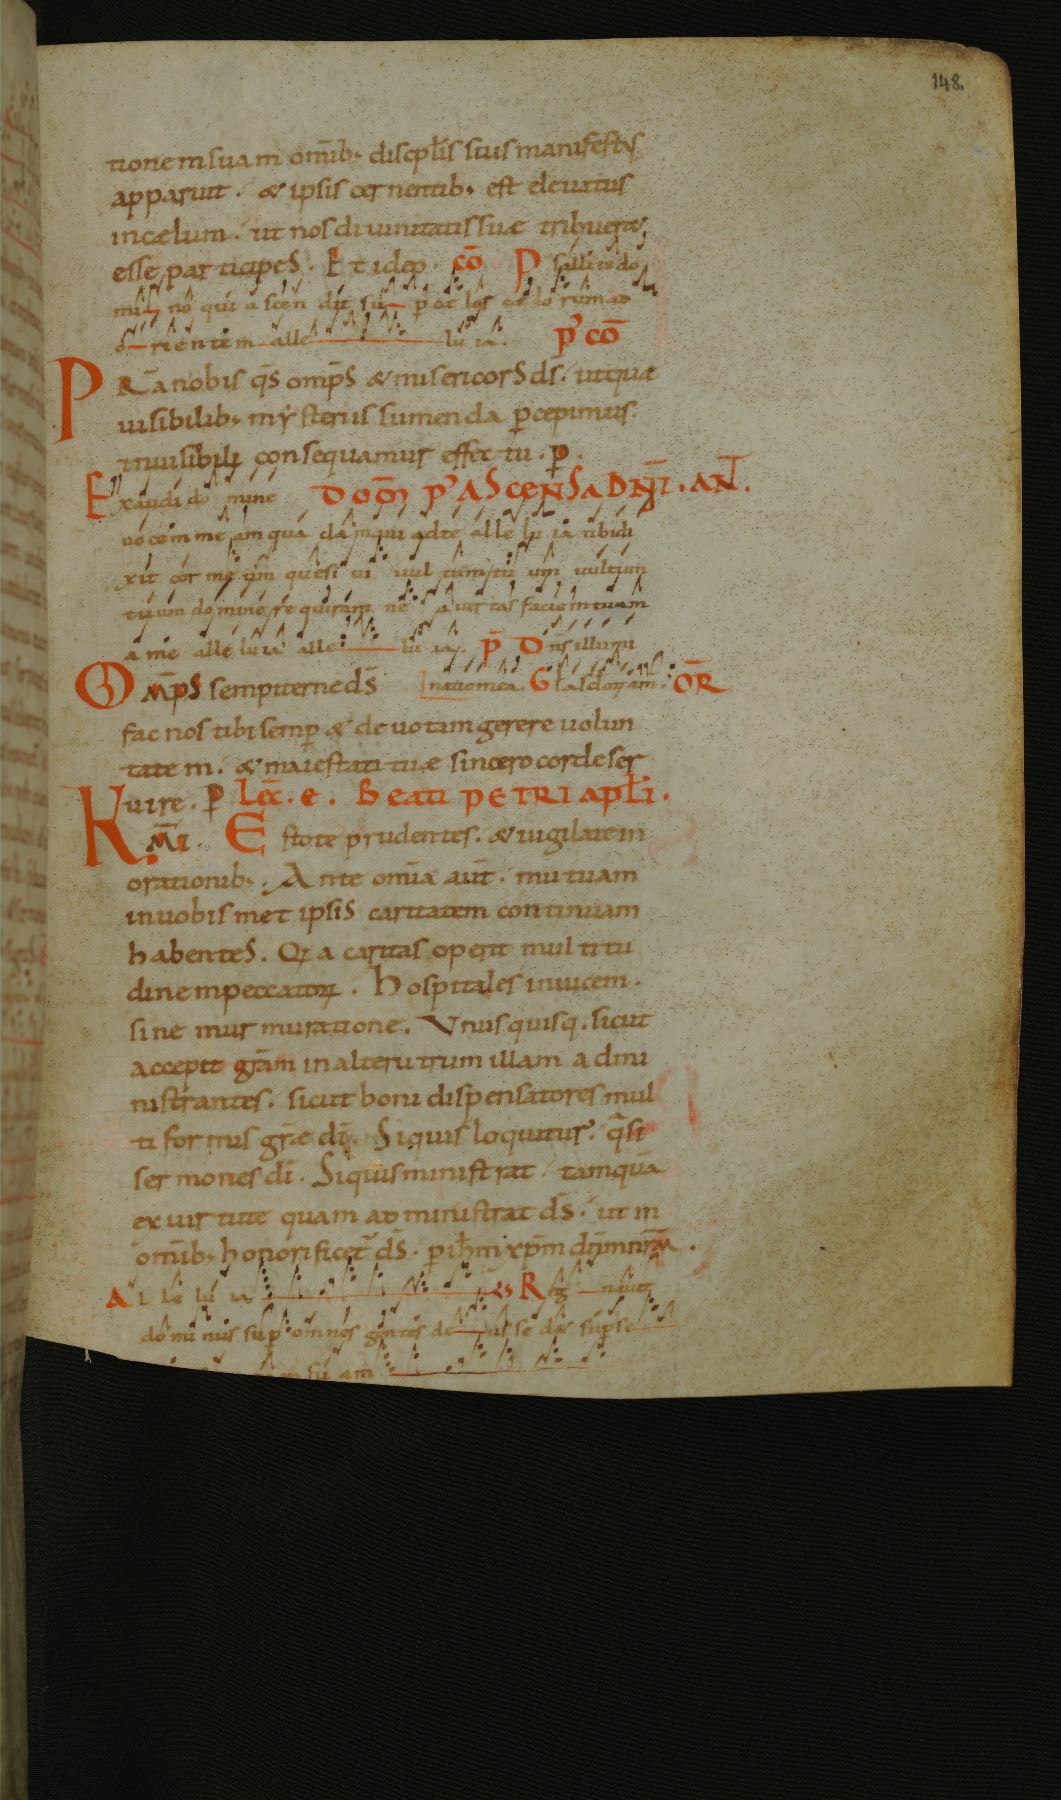 148.
tionem suam omīb; discipłis suis manifestus
apparuit. & ipsis cernentib; est eleuatus
incaelum. ut nos diuinitatis suae tribuer&
esse participes. Et ideo. cō Psallite do
mino qui ascendit super caelos caelorum ad
orientem alleluia. p' cō
PRā nobis qs omps & misericors ds. ut quae
uisibilib; mysteriis sumenda pcepimus.
inuisibili consequamur effectu. p.
Exaudi domine DOM p' ASCENSA DNI. AN.
uocem meam qua clamaui ad te alleluia tibi di
xit cor meum quesiui uultum tuum uultum
tuum domine requiram ne auertas faciem tuam
a me alleluia alleluia. p Dns illumi
Omps sempiterne ds natio mea. Glās domum. OR
fac nos tibi semp & deuotam gerere uolun
tatem. & maiestati tuae sincero corde ser
uire. p Lec. e. Beati PETRI apłi.
KMI. Estote prudentes. & uigilate in
orationib;. Ante omīa aūt. mutuam
inuobismet ipsis caritatem continuam
habentes. Qia caritas operit multitu
dinem peccatorꝝ. Hospitales inuicem.
sine murmuratione. Vnusquisq. sicut
accepit grām in alterutrum illam admi
nistrantes. sicut boni dispensatores mul
tiformis grae di. Siquis loquitur. qsi
sermones di. Siquis ministrat. tamquā
ex uirtute quam administrat ds. ut in
omīb; honorificet' ds. p ihm xpm dnm nrm.
Alleluia Regnauit
dominus sup omnes gentes deus sed& sup se
suam